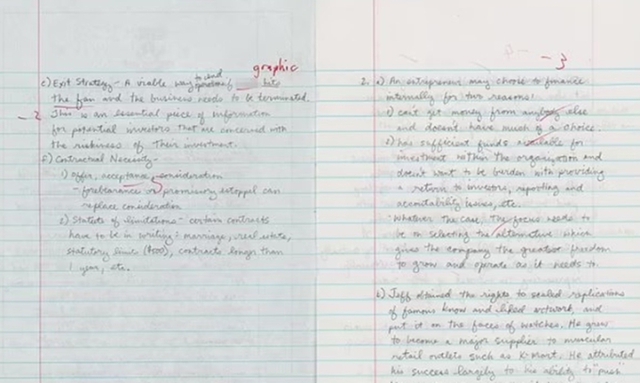 graphic
e) Exit Strategy - A viable way to shed
operation if hits
the fan and the business needs to be terminated.
-2 This is an essential piece of information
for potential investors that are concerned with
the riskiness of their investment.
f) Contractual Necessity -
1) Offer, acceptance, consideration
- forebearance or promissory estoppel can
replace consideration
2) Statute of limitations - certain contracts
have to be in writing: marriage, real estate,
statutory limit ($500), contracts longer than
1 year, etc.
-3
2. a) An entrepreneur may choose to finance
internally for two reasons:
1) can't get money from anybody else
and doesn't have much of a choice.
2) has sufficient funds available for
investment within the organization and
doesn't want to be burden with providing
a return to investors, reporting and
accountability issues, etc.
Whatever the case, the focus needs to
be on selecting the alternative which
gives the company the greatest freedom
to grow and operate as it needs to.
b) Jeff obtained the rights to sealed replications
of famous know and liked artwork and
put it on the faces of watches. He grew
to become a major supplier to
retail outlets such as K-Mart. He attributed
his success largely to his ability to "push"